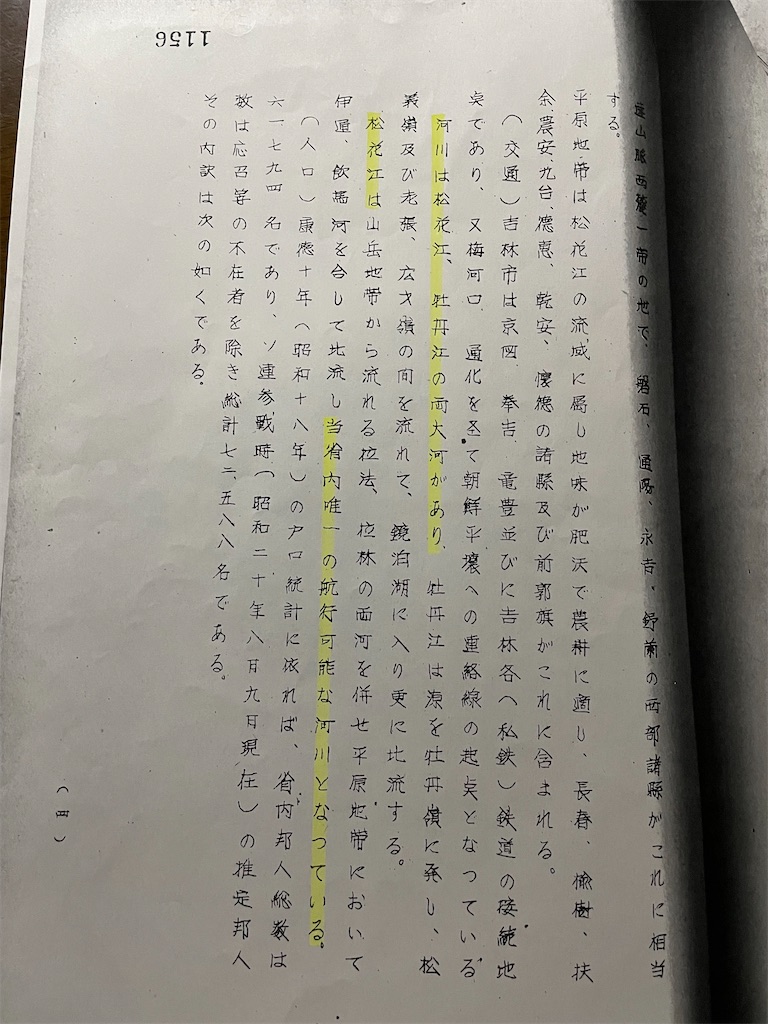 連山脈西麓一帯の地で、磐石、通陽、永吉、舒蘭の西部諸縣がこれに相当
する。
平原地帯は松花江の流域に属し地味が肥沃で農耕に適し、長春、楡樹、扶
余、農安、九台、徳恵、乾安、懐徳の諸縣及び前郭旗がこれに含まれる。
（交通）吉林市は京図、奉吉、竜豊並びに吉林各へ私鉄）鉄道の接続地
奌であり、又梅河口、通化を圣て朝鮮平壌への連絡線の起奌となつている
河川は松花江、牡丹江の両大河があり、牡丹江は源を牡丹嶺に発し、松
義嶺及び老張、広才嶺の間を流れて、鏡泊湖に入り更に北流する。
松花江は山岳地帯から流れる拉法、拉林の両河を併せ平原地帯において
伊通、飲馬河を合して北流し当省内唯一の航行可能な河川となつている。
（人口）康徳十年（昭和十八年）の戸口統計に依れば、省内邦人総数は
六一七九四名であり、ソ連参戦時（昭和二十年八月九日現在）の推定邦人
数は応召等の不在者を除き総計七二、五八八名である。
その内訳は次の如くである。
（四）
1156